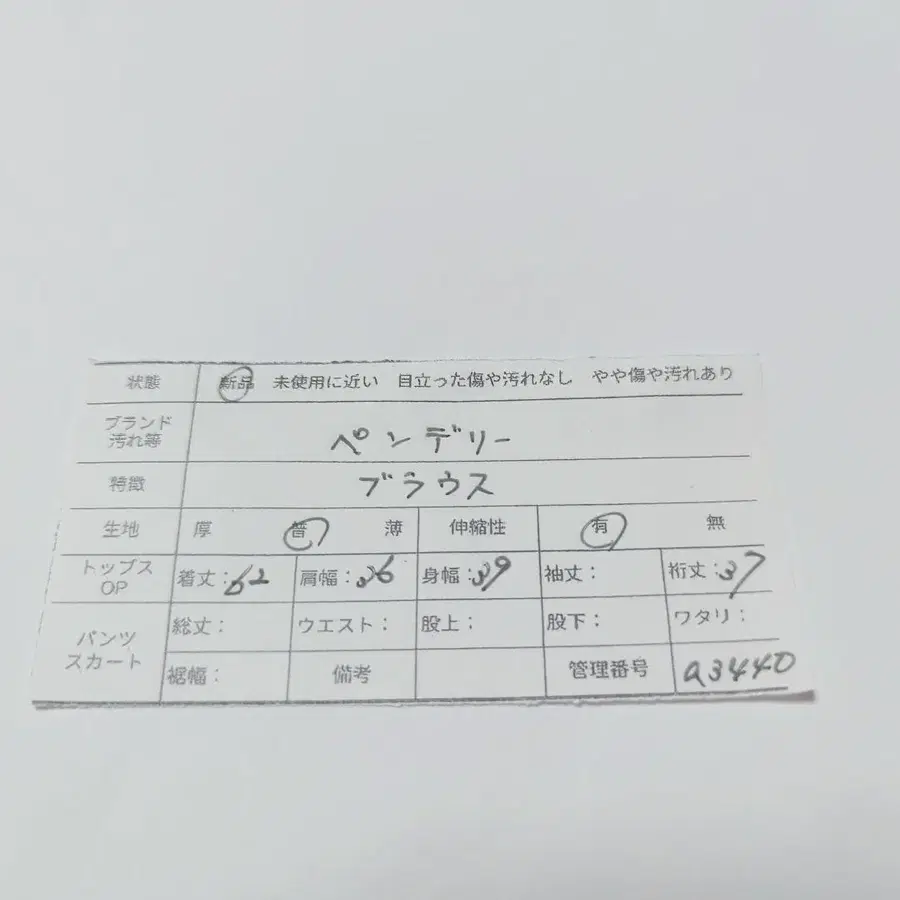 状態 新品 未使用に近い 目立った傷や汚れなし やや傷や汚れあり
ブランド
汚れ等 ペンデリー
特徴 ブラウス
生地 厚 普 薄 伸縮性 有 無
トップス
OP 着丈:62 肩幅:36 身幅:39 袖丈: 裄丈:37
パンツ
スカート 総丈: ウエスト: 股上: 股下: ワタリ:
裾幅: 備考 管理番号 a3440